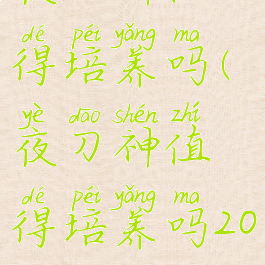 dé péi yǎng ma
得培养吗(
yè dāo shén zhí
夜刀神值
dé péi yǎng ma
得培养吗20